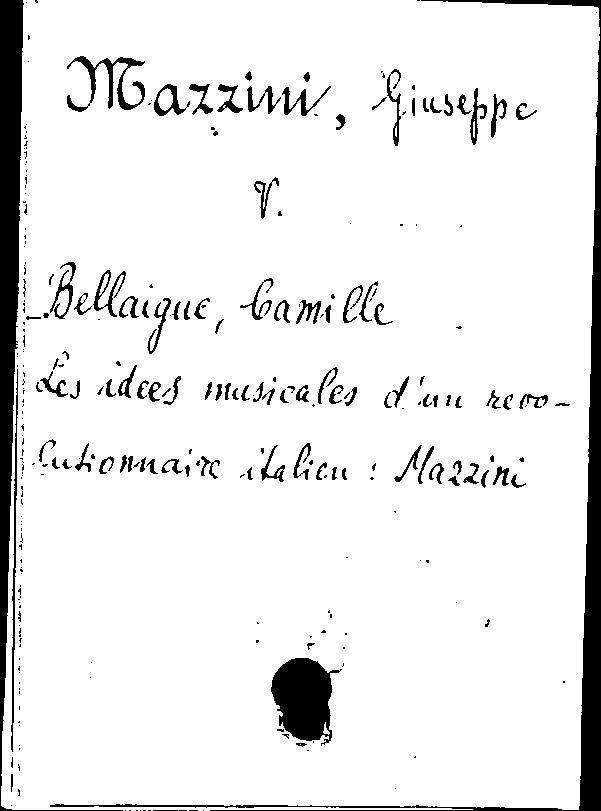 Mazzini, Giuseppe
V.
Bellaigue, Camille
Les idees musicales d'un revo-
lutionnaire italien : Mazzini